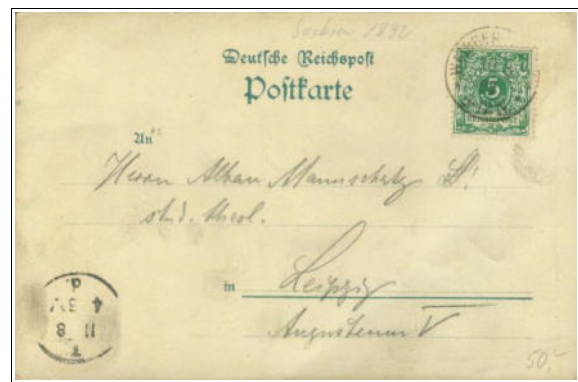 Sachsen 1892
Deutsche Reichspost
Postkarte
5
REICHSPOST
An
Herrn Alban Mannschatz
stud. theol.
in Leipzig
Augusteum V
11 8
4-5
50,-